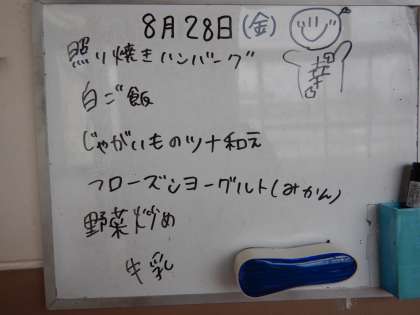 8月28日(金)
照り焼きハンバーグ
白ご飯
じゃがいものツナ和え
フローズンヨーグルト(みかん)
野菜炒め
牛乳